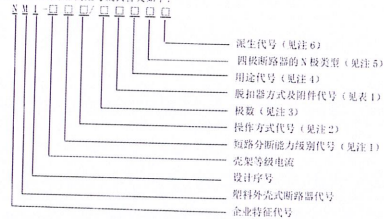 N M 1 - □ □ □ / □ □ □ □ □
派生代号（见注6）
四极断路器的N极类型（见注5）
用途代号（见注4）
脱扣器方式及附件代号（见表1）
极数（见注3）
操作方式代号（见注2）
短路分断能力级别代号（见注1）
壳架等级电流
设计序号
塑料外壳式断路器代号
企业特征代号